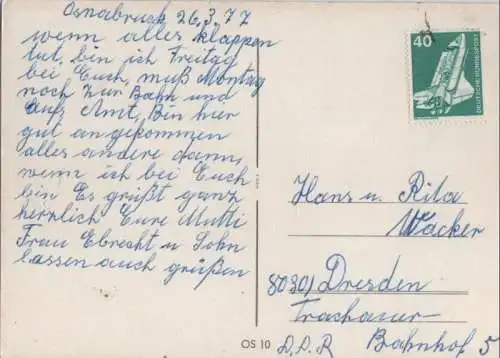 Osnabruck 26.3.77
wenn alles klappen
tut, bin ich Freitag
bei Euch, muß Montag
noch zur Bahn und
aufs Amt, Bin hier
gut angekommen
alles andere dann,
wenn ich bei Euch
bin Es grüßt ganz
herrlich Eure Mutti
Frau Ebrecht u Sohn
lassen auch grüßen
40
DEUTSCHE BUNDESPOST
Hans u. Rita
Wacker
8030 Dresden
Trachauer-
Bahnhof 5
D.D.R
OS 10